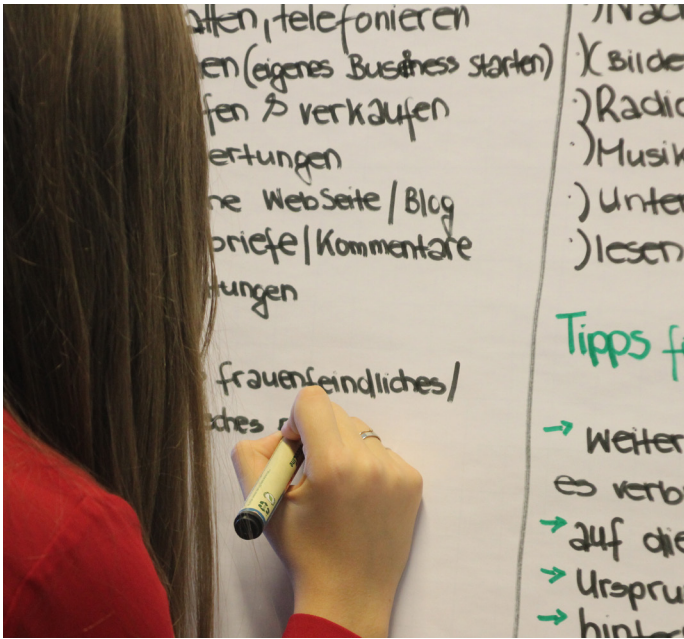 alten, telefonieren
en (eigenes Business starten)
fen & verkaufen
ertungen
ne WebSeite / Blog
briefe / Kommentare
tungen
frauenfeindliches /
sches
:) Nach
:) (Bilde
:) Radio
:) Musik
:) Unter
:) lesen
Tipps f
→ Weiter
es verb
→ auf die
→ Urspru
→ hinter